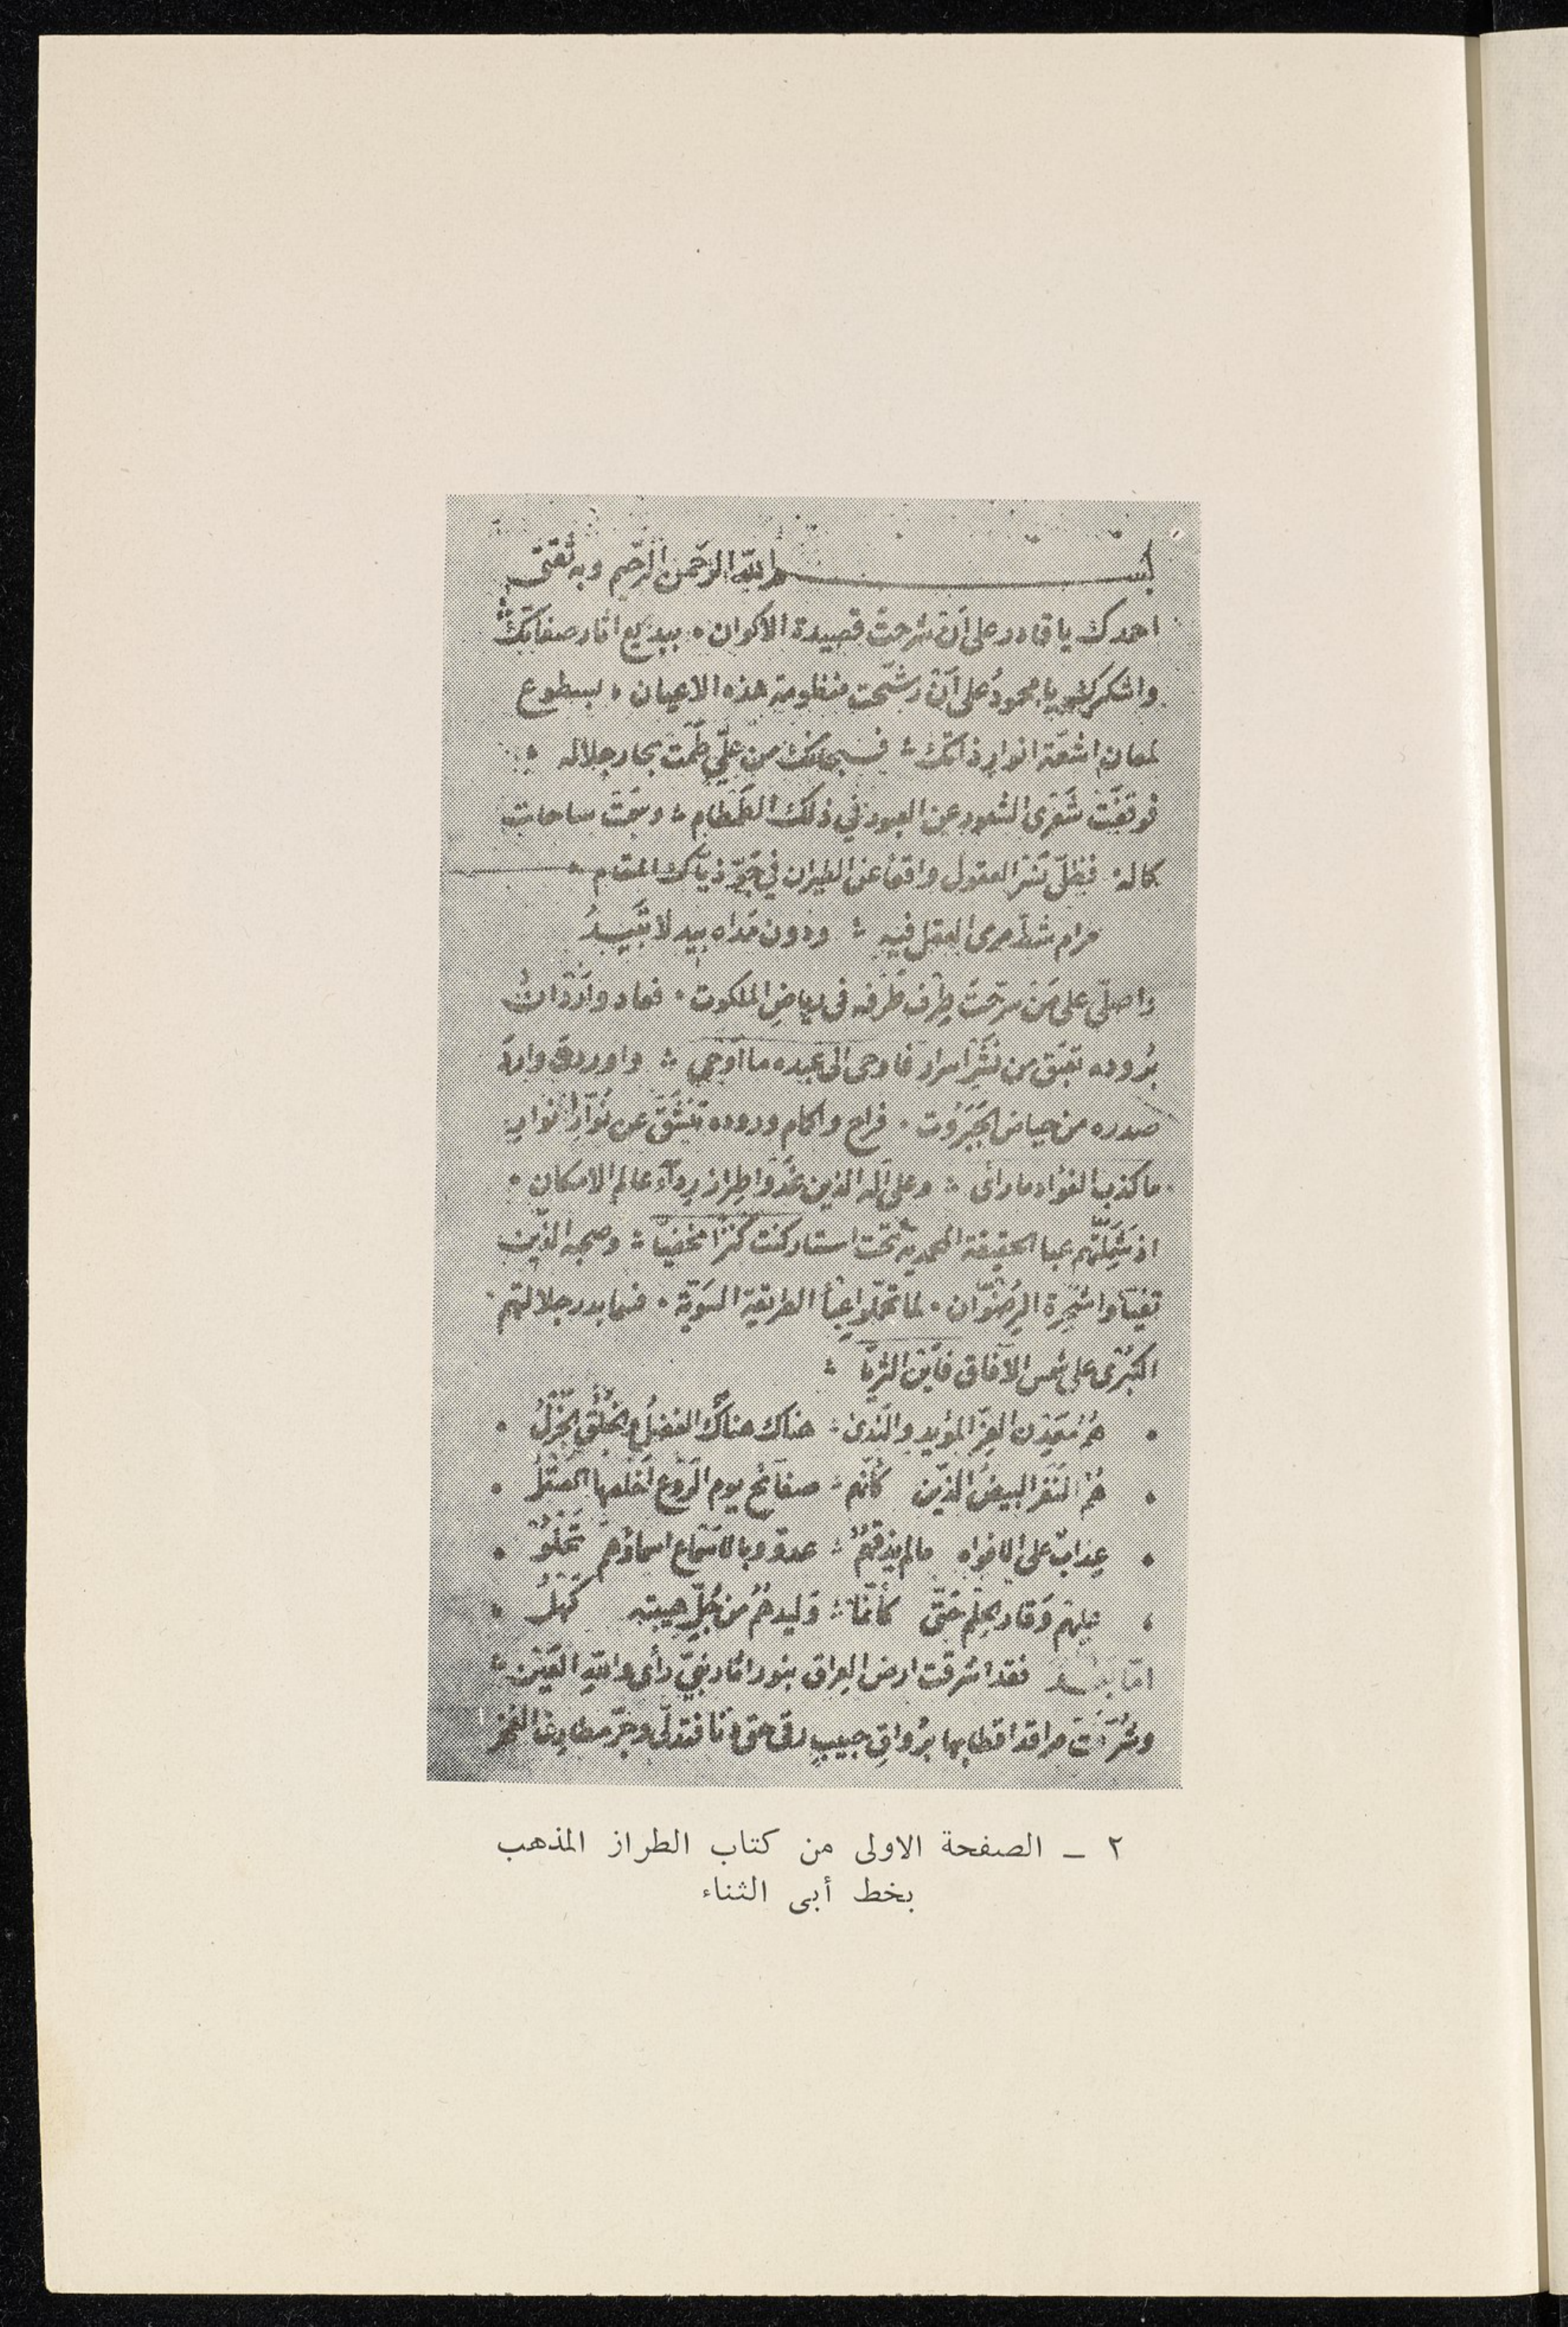 بسم الله الرحمن الرحيم وبه ثقتي
احمدك يا قادر على أن شرحت قصيدة الاكوان • ببديع اثار صفاتك
واشكرك يا محمودُ على أن رشّحت منظومة هذه الاعيان • بسطوع
لمعان اشعّة انوار ذاتك ؞ فسبحانك من عليّ طمّت بحار جلاله ؞
فوقفت شعرى الشعور عن العبور في ذلك الطمطام ؞ وسمت ساحات
كماله • فظلّ نسر العقول واقعا عن الطيران في جوّ ذيّاك المقام ؞
مرام شطّ مرمى العقل فيه ؞ ودون مداه بيد لا تبيدُ
واصلّى على من سرّحت طِرف طَرفه فى رياض الملكوت • فعاد واردان
بُروده تعبق من نشر اسرار فاوحى الى عبده ما اوحى ؞ واوردته وارد
صدره من حياض الجبروت • فراح واكام وروده تنشقّ عن نوّار انوار
ما كذب الفؤاد ما رأى ؞ وعلى آله الذين غدوا طراز رداء عالم الامكان •
اذ شملتهم عبا الحقيقة المحمدية تحت استار كنت كنزا مخفيّا ؞ وصحبه الذين
تفيّأوا شجرة الرضوان • لما تحمّلوا عبأ الطريقة السويّة • فسما بدر جلالتهم
الكبرى على شمس الآفاق فاين الثريّا ؞
• همُ معدن العزّ المؤيد والندى ؞ هناك هناك الفضلُ والخلق الجزلُ •
• همُ النفر البيض الذين كأنهم ؞ صفائح يوم الروع اخلصها الصقلُ •
• عِذابٌ على الافواه ما لم يذقهمُ ؞ عدوّ وبالاسماع اسماؤهم تحلو •
• عليهم وقار الحلم حتّى كأنما ؞ وليدهمُ من جُلّ هيبته كهلُ •
امّا بعد فقد اشرقت ارض العراق بنور اثار نبيّ رأى والله العين ؞
وشرّفت مراقد اقطابها برُواقِ حبيبٍ رقى حتى دنا فتدلّى وجرّ مطارف الفخر
٢ ـ الصفحة الاولى من كتاب الطراز المذهب
بخط أبى الثناء